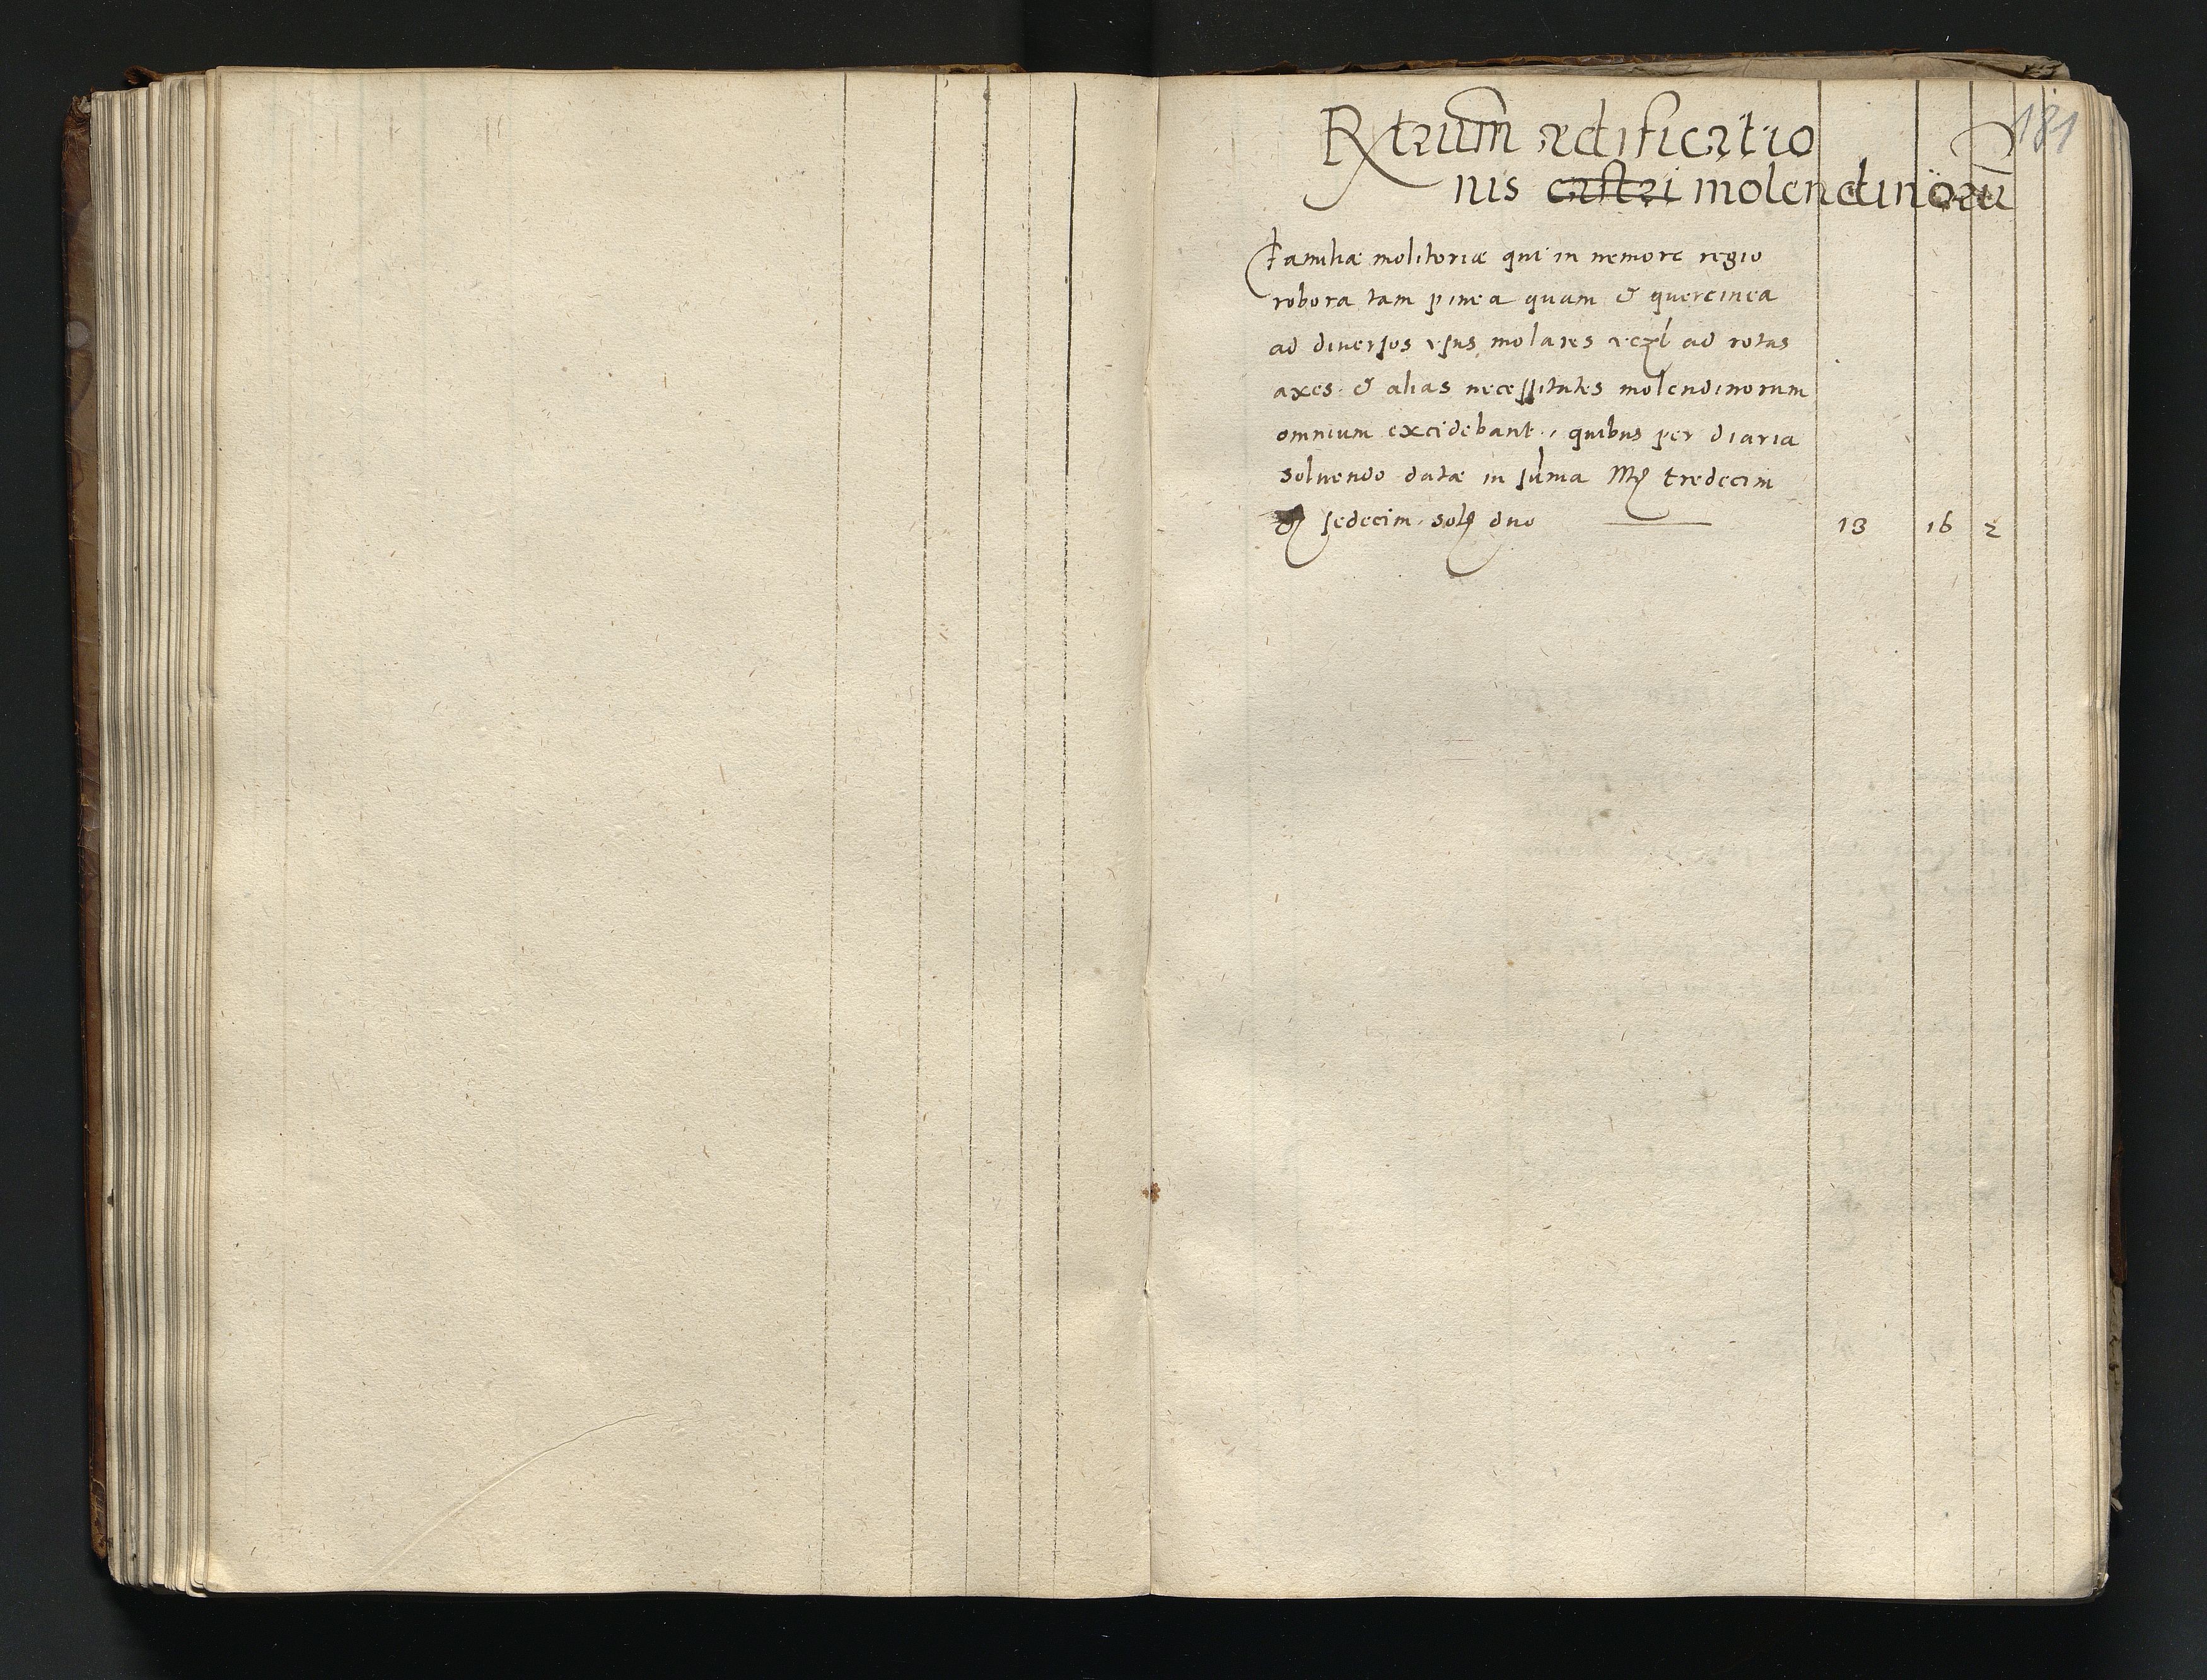 181
Rxtrum ædificatio
nis castri molendinorū
Familiæ molitoriæ qui in nemore regio
robora tam pinea quam & quercinea
ad diuersos vsus molares ad rotas
axes & alias necessitates molendinorum
omnium excidebant, quibus per diaria
soluendo datæ in sūma Mṛ tredecim
sedecim. sol duo — 13 16 2